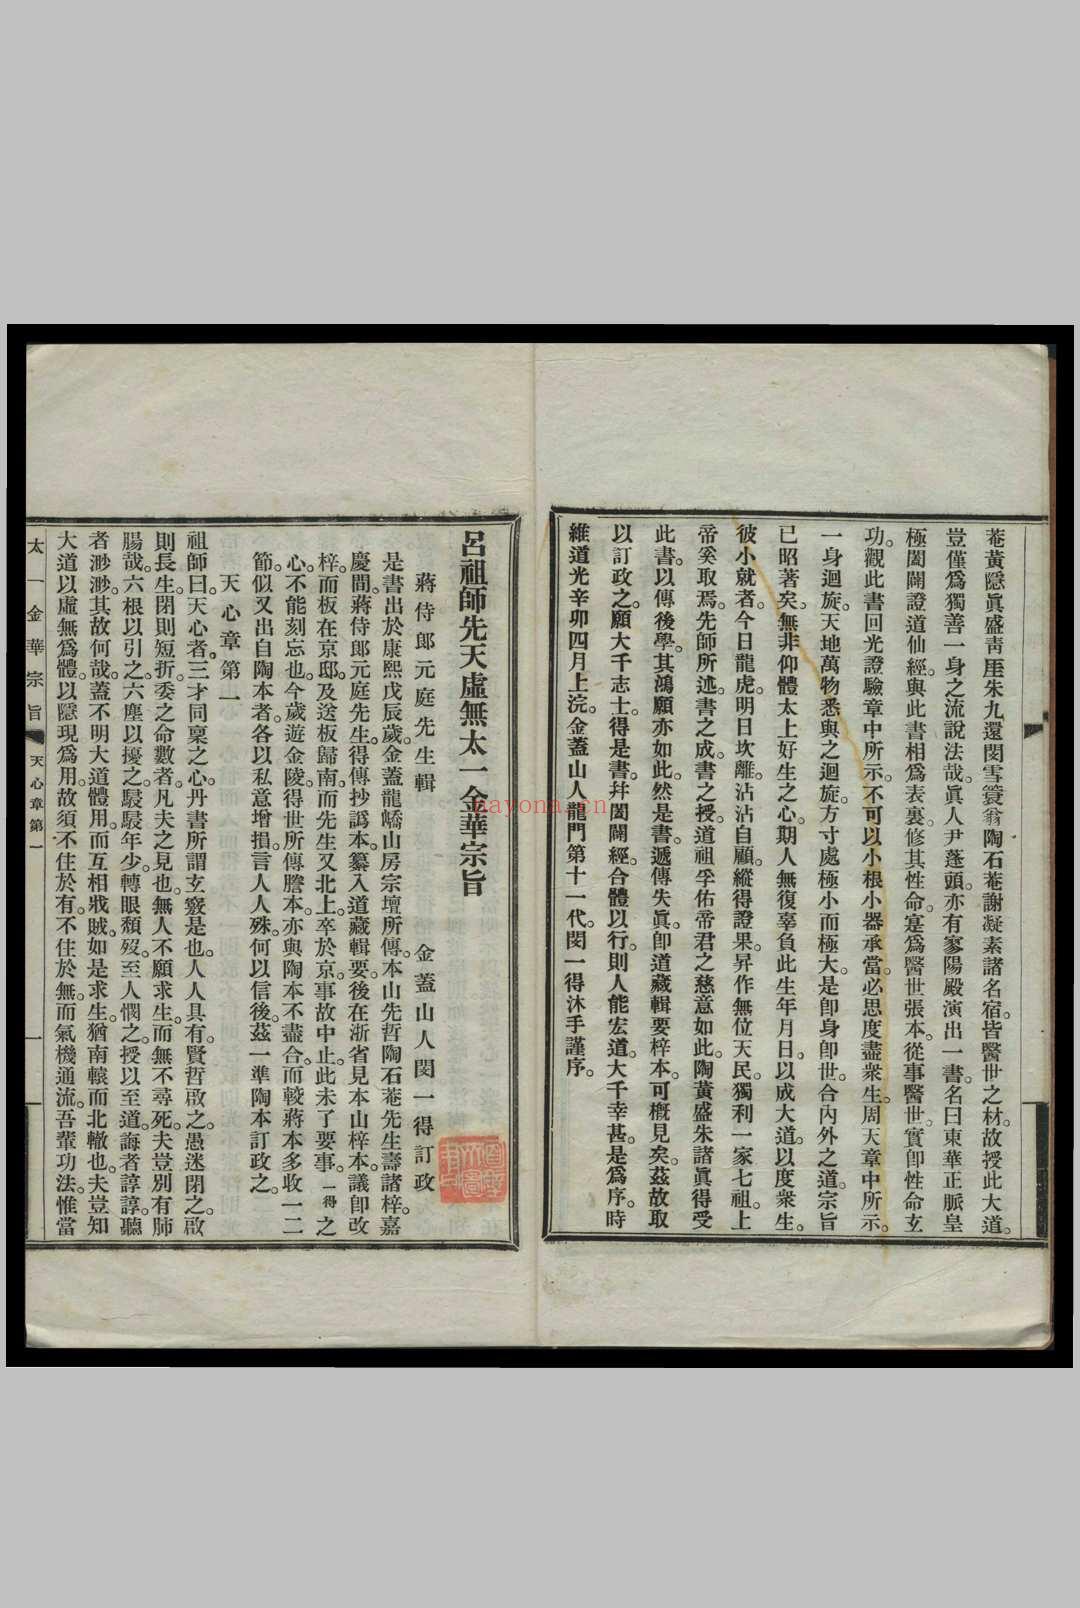 菴黃隱眞盛靑厓朱九還閔雪簑翁陶石菴謝凝素諸名宿。皆醫世之材。故授此大道。
豈僅爲獨善一身之流說法哉。眞人尹蓬頭。亦有寥陽殿演出一書。名曰東華正脈皇
極闔闢證道仙經。與此書相爲表裏。修其性命。寔爲醫世張本。從事醫世。實卽性命玄
功。觀此書回光證驗章中所示。不可以小根小器承當。必思度盡衆生。周天章中所示。
一身迴旋。天地萬物悉與之迴旋。方寸處極小而極大。是卽身卽世合內外之道。宗旨
已昭著矣。無非仰體太上好生之心。期人無復辜負此生年月日。以成大道。以度衆生。
彼小就者。今日龍虎。明日坎離。沾沾自顧。縱得證果。昇作無位天民。獨利一家七祖。上
帝奚取焉。先師所述。書之成。書之授。道祖孚佑帝君之慈意如此。陶黃盛朱諸眞得受
此書。以傳後學。其鴻願亦如此。然是書。遞傳失眞。卽道藏輯要梓本。可槪見矣。茲故取
以訂政之。願大千志士。得是書。幷闔闢經。合體以行。則人能宏道。大千幸甚。是爲序。時
維道光辛卯四月上浣。金蓋山人龍門第十一代閔一得沐手謹序。
呂祖師先天虛無太一金華宗旨
蔣侍郎元庭先生輯 金蓋山人閔一得訂政
是書出於康熙戊辰歲。金蓋龍嶠山房宗壇所傳。本山先哲陶石菴先生壽諸梓。嘉
慶間。蔣侍郎元庭先生。得傳抄譌本。纂入道藏輯要。後在浙省見本山梓本。議卽改
梓。而板在京邸。及送板歸南。而先生又北上。卒於京。事故中止。此未了要事。一得之
心。不能刻忘也。今歲遊金陵。得世所傳謄本。亦與陶本不盡合。而較蔣本多收一二
節。似又出自陶本者。各以私意增損。言人人殊。何以信後。茲一準陶本訂政之。
天心章第一
祖師曰。天心者。三才同稟之心。丹書所謂玄竅是也。人人具有。賢哲啟之。愚迷閉之。啟
則長生。閉則短折。委之命數者。凡夫之見也。無人不願求生。而無不尋死。夫豈別有肺
腸哉。六根以引之。六塵以擾之。駸駸年少。轉眼頹歿。至人憫之。授以至道。誨者諄諄。聽
者渺渺。其故何哉。蓋不明大道體用。而互相戕賊。如是求生。猶南轅而北轍也。夫豈知
大道以虛無爲體。以隱現爲用。故須不住於有。不住於無。而氣機通流。吾輩功法。惟當
太一金華宗旨 天心章第一 一
nayona.cn